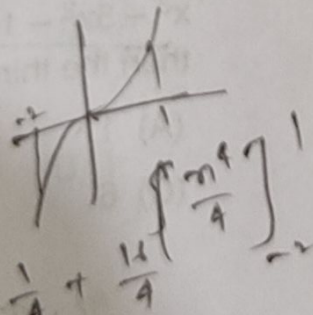 -2
1
[x⁴/4] 1 -2
1/4 + 16/4